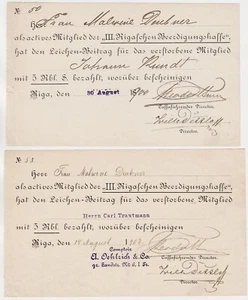 № 50
Frau Malwine Drebner
als actives Mitglied der „III. Rigaschen Beerdigungskasse“,
hat den Leichen-Beitrag für das verstorbene Mitglied
Johann Kundt
mit 3 Rbl. S. bezahlt, worüber bescheinigen
Riga, den 30 August 1900
Cassaführender Director.
Director.
№ 53
Herr Frau Malwine Drebner
als actives Mitglied der „III. Rigaschen Beerdigungskasse“
hat den Leichen-Beitrag für das verstorbene Mitglied
Herrn Carl Trautmann
mit 3 Rbl. bezahlt, worüber bescheinigen
Riga, den 14 August
Comptoir
A. Oehlrich & Co.
gr. Sandstr.
Cassaführender Director.
Director.